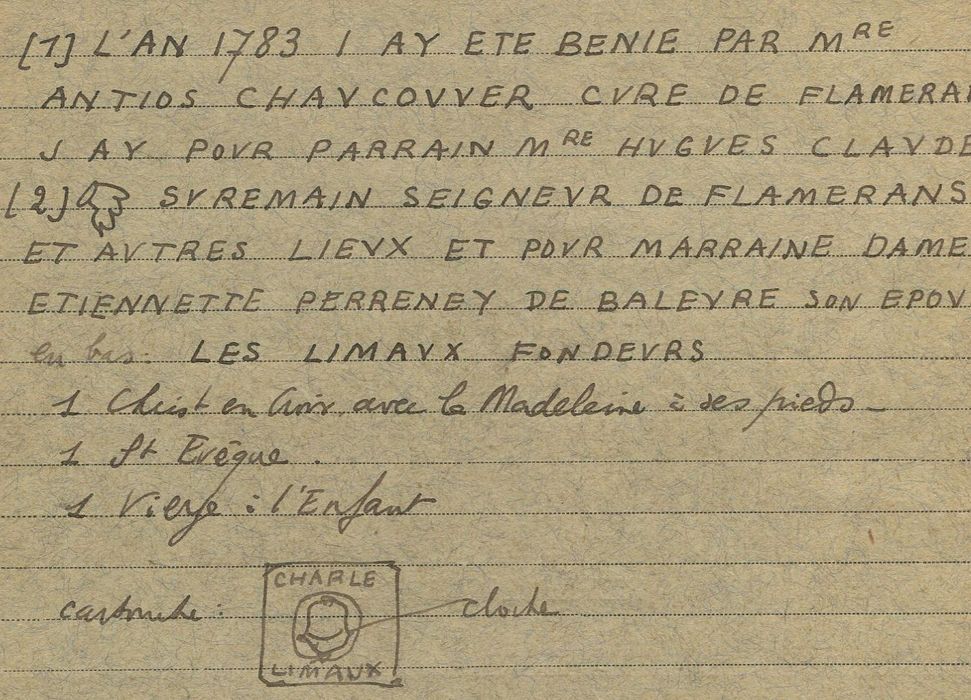 [1] L'AN 1783 I AY ETE BENIE PAR MRE
ANTIDS CHAVCOVVER CVRE DE FLAMERAN
J AY POVR PARRAIN MRE HVGVES CLAVDE
[2] SVREMAIN SEIGNEVR DE FLAMERANS
ET AVTRES LIEVX ET POVR MARRAINE DAME
ETIENNETTE PERRENEY DE BALEVRE SON EPOV
en bas: LES LIMAVX FONDEVRS
1 Christ en Croix avec la Madeleine à ses pieds
1 St Evêque.
1 Vierge à l'Enfant
CHARLE
cartouche: cloche
LIMAUX